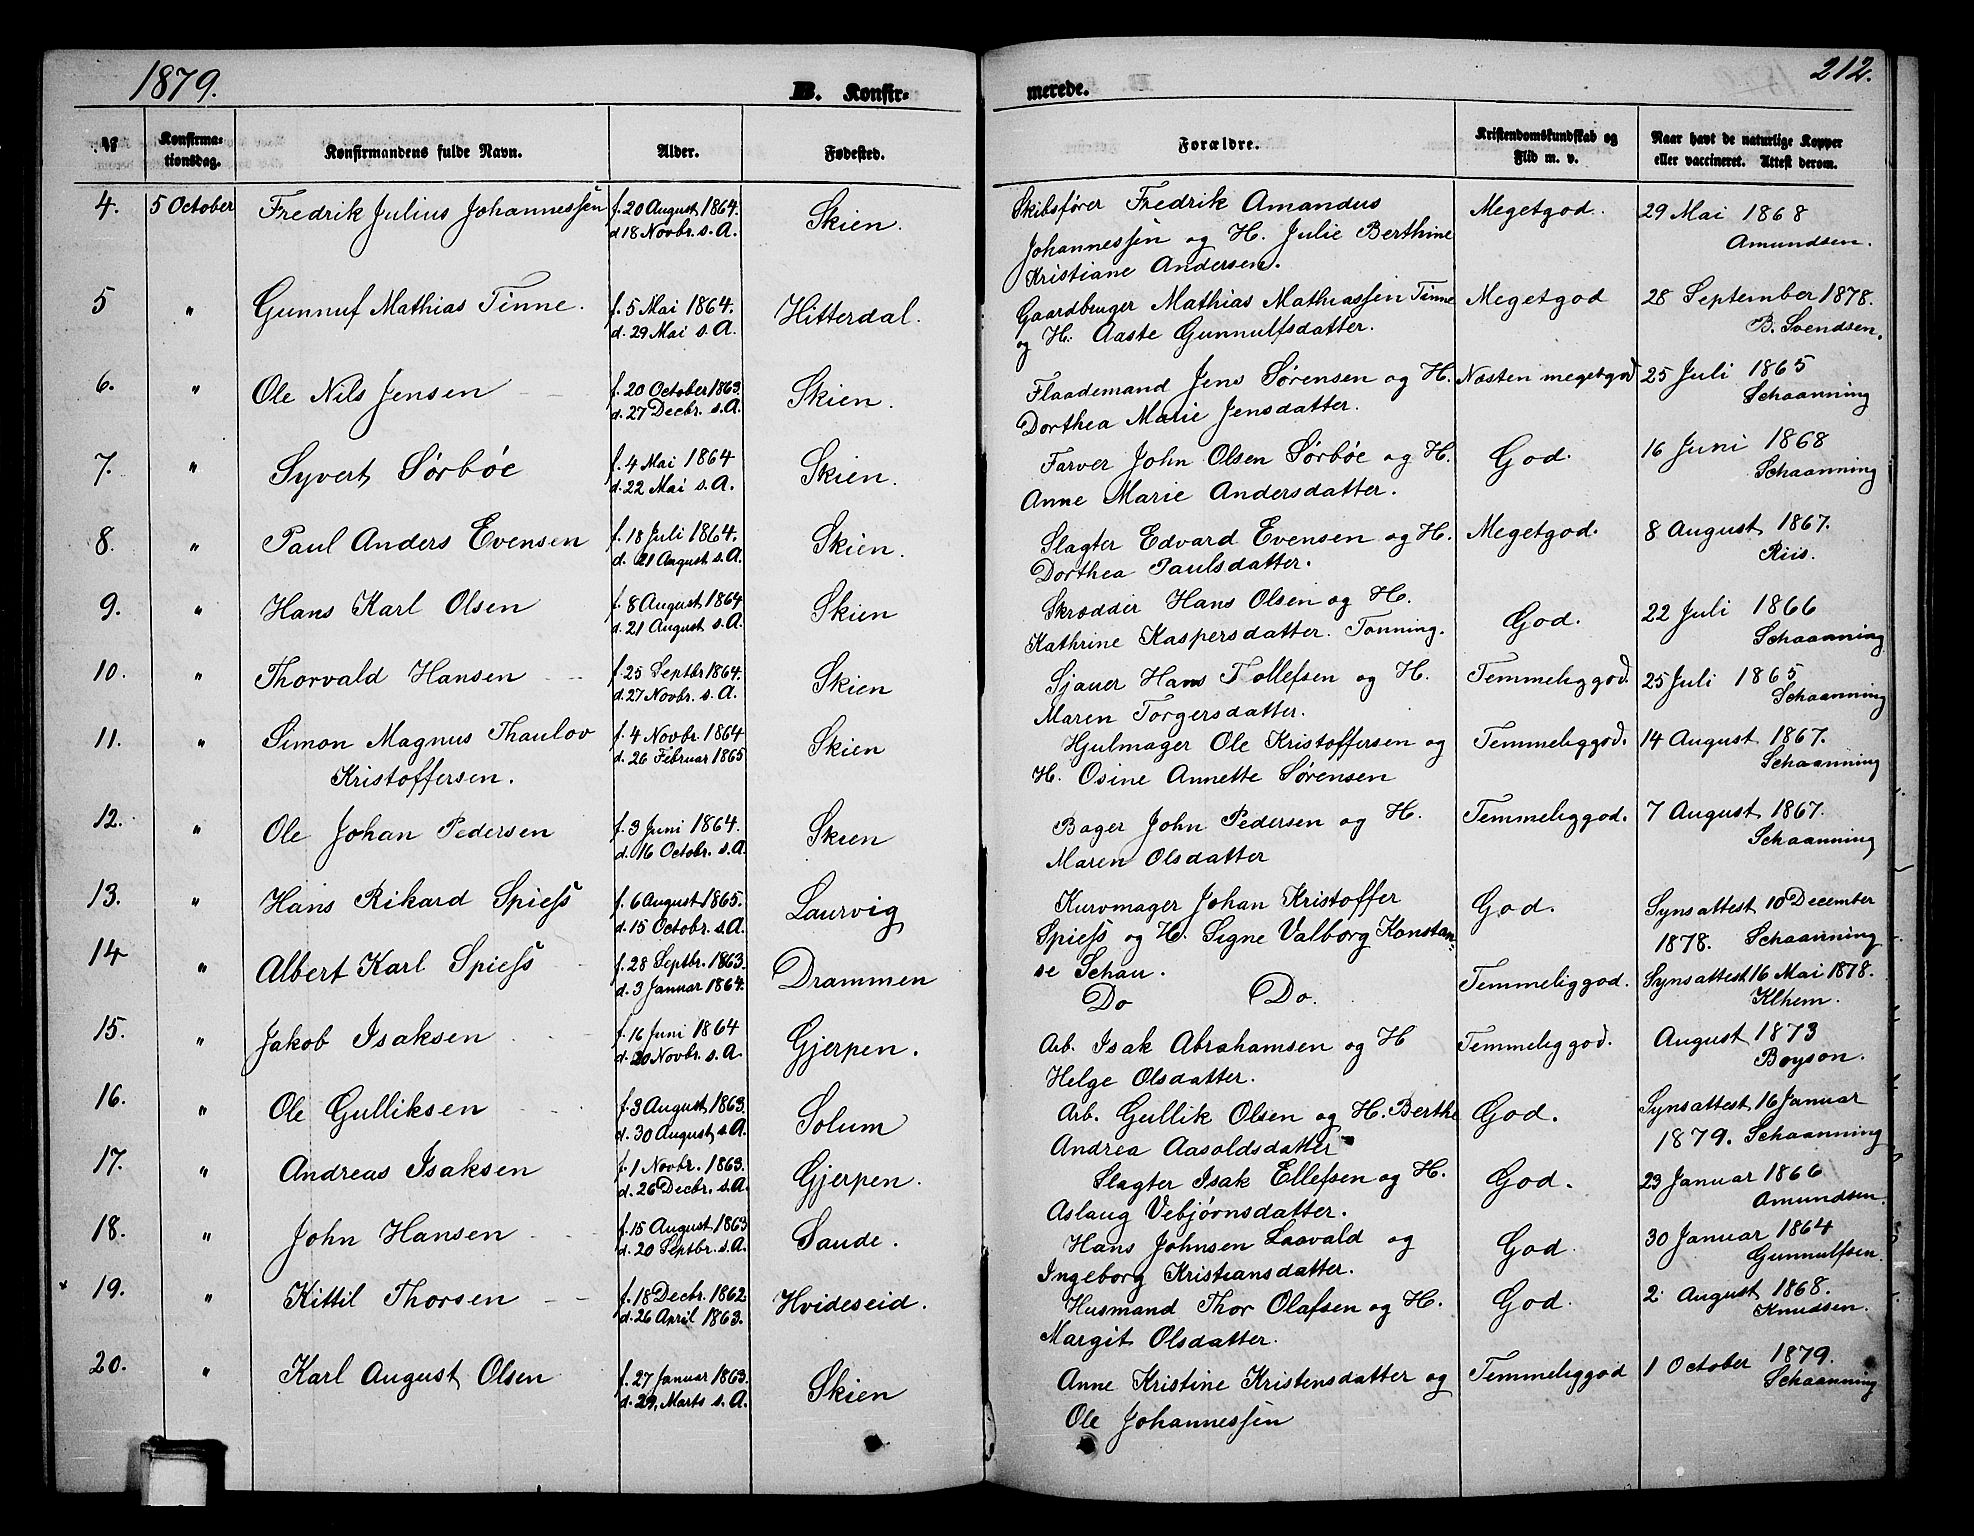 1879.
B. Konfir-
merede.
212.
№
Konfirma-
tionsdag.
Konfirmandens fulde Navn.
Alder.
Fødested.
Forældre.
Kristendomskundskab og
Flid m. v.
Naar havt de naturlige Kopper
eller vaccineret. Attest derom.
4. 5 October Fredrik Julius Johannessen f. 20 August 1864. Skien. Skibsfører Fredrik Amandus Megetgod. 29 Mai 1868
d 18 Novbr. s. A. Johannessen og H. Julie Berthine Amundsen.
Kristiane Andersen.
5 " Gunnuf Mathias Tinne. f. 5 Mai 1864. Hitterdal. Gaardbruger Mathias Mathiassen Tinne Megetgod 28 September 1878.
d. 29 Mai s. A. og H. Aaste Gunnulfsdatter. B. Svendsen.
6. " Ole Nils Jensen f. 20 October 1863. Skien. Flaademand Jens Sørensen og H. Næsten megetgod 25 Juli 1865
d. 27 Decbr. s. A. Dorthea Marie Jensdatter. Schaanning
7. " Syvert Sørbøe f. 4 Mai 1864 Skien. Farver John Olsen Sørbøe og H. God. 16 Juni 1868
d. 22 Mai s. A. Anne Marie Andersdatter. Schaanning
8. " Paul Anders Evensen f. 18 Juli 1864. Skien. Slagter Edvard Evensen og H. Megetgod. 8 August 1867.
d. 21 August s. A. Dorthea Paulsdatter. Riis.
9. " Hans Karl Olsen f. 8 August 1864 Skien Skrædder Hans Olsen og H. God. 22 Juli 1866
d. 21 August s. A. Kathrine Kaspersdatter. Tønning. Schaanning
10. " Thorvald Hansen f. 25 Septbr 1864. Skien Sjauer Hans Tollefsen og H. Temmeliggod. 25 Juli 1865
d. 27 Novbr. s. A. Maren Torgersdatter. Schaanning
11. " Simon Magnus Thaulov f. 4 Novbr. 1864 Skien Hjulmager Ole Kristoffersen og Temmeliggod. 14 August 1867.
Kristoffersen. d. 26 Februar 1865 H. Osine Annette Sørensen Schaanning
12. " Ole Johan Pedersen f. 3 Juni 1864. Skien Bager John Pedersen og H. Temmeliggod. 7 August 1867.
d. 16 Octobr. s. A. Maren Olsdatter Schaanning
13. " Hans Rikard Spiess f. 6 August 1865. Laurvig Kurvmager Johan Kristoffer God. Synsattest 10 December
d. 15 Octobr. s. A. Spiess og H. Signe Valborg Konstan- 1878. Schaanning
se Schau.
14 " Albert Karl Spiess f. 28 Septbr. 1863. Drammen Do Do. Temmeliggod. Synsattest 16 Mai 1878.
d. 3 Januar 1864. Klhem.
15. " Jakob Isaksen f. 16 Juni 1864 Gjerpen. Arb. Isak Abrahamsen og H Temmeliggod. August 1873
d. 20 Novbr. s. A. Helge Olsdatter. Boyson.
16. " Ole Gulliksen f. 3 August 1863. Solum Arb. Gullik Olsen og H. Berthe God. Synsattest 16 Januar
d. 30 August s. A. Andrea Aasoldsdatter 1879. Schaanning
17. " Andreas Isaksen f. 1 Novbr. 1863. Gjerpen. Slagter Isak Ellefsen og H. God. 23 Januar 1866
d. 26 Decbr. s. A. Aslaug Vebjørnsdatter. Amundsen.
18. " John Hansen f. 15 August 1863 Saude. Hans Johnsen Laavald og God. 30 Januar 1864
d. 20 Septbr. s. A. Ingeborg Kristiansdatter. Gunnulfsen
x 19. " Kittil Thorsen f. 18 Decbr. 1862 Hvideseid. Husmand Thor Olafsen og H. God. 2 August 1868.
d. 26 April 1863. Margit Olsdatter. Knudsen.
20. " Karl August Olsen f. 27 Januar 1863. Skien Anne Kristine Kristensdatter og Temmeliggod 1 October 1879.
d. 29, Marts s. A. Ole Johannessen Schaanning